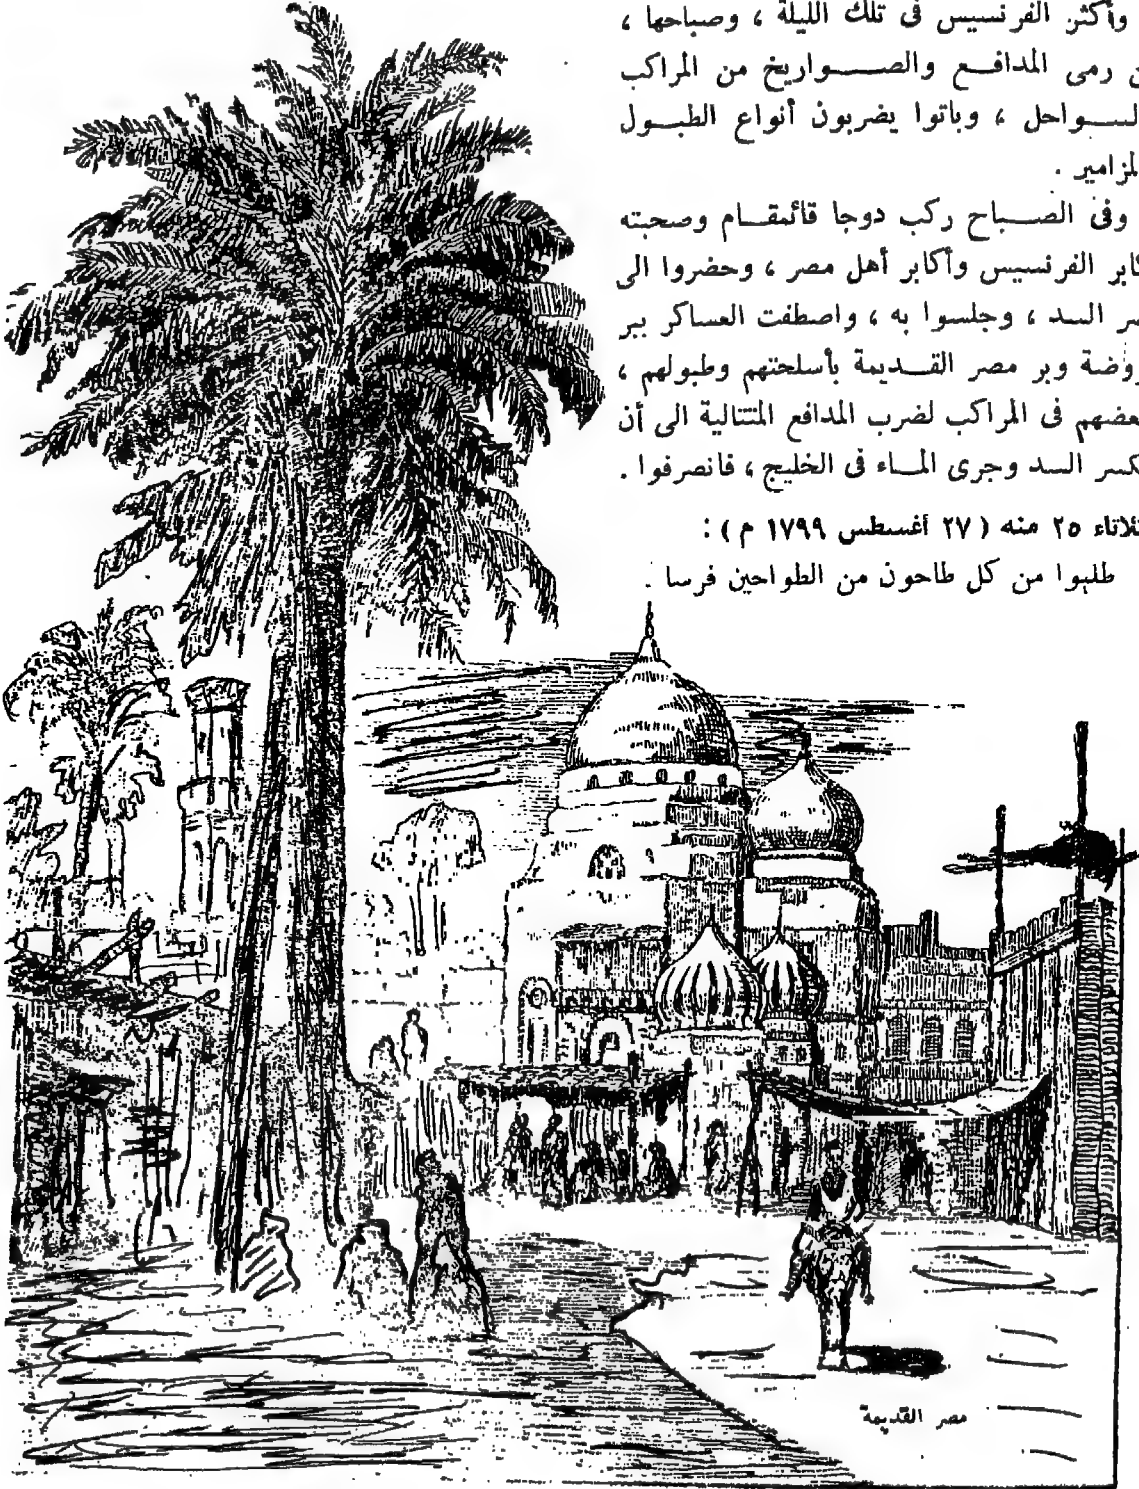 وأكثر الفرنسيس فى تلك الليلة ، وصباحها ،
رمى المدافع والصواريخ من المراكب
والسواحل ، وباتوا يضربون أنواع الطبول
والمزامير .
وفى الصباح ركب دوجا قائمقام وصحبته
أكابر الفرنسيس وأكابر أهل مصر ، وحضروا الى
السد ، وجلسوا به ، واصطفت العساكر ببر
الروضة وبر مصر القديمة بأسلحتهم وطبولهم ،
وبعضهم فى المراكب لضرب المدافع المتتالية الى أن
السد وجرى الماء فى الخليج ، فانصرفوا .
الثلاثاء ٢٥ منه ( ٢٧ أغسطس ١٧٩٩ م ) :
طلبوا من كل طاحون من الطواحين فرسا .
مصر القديمة